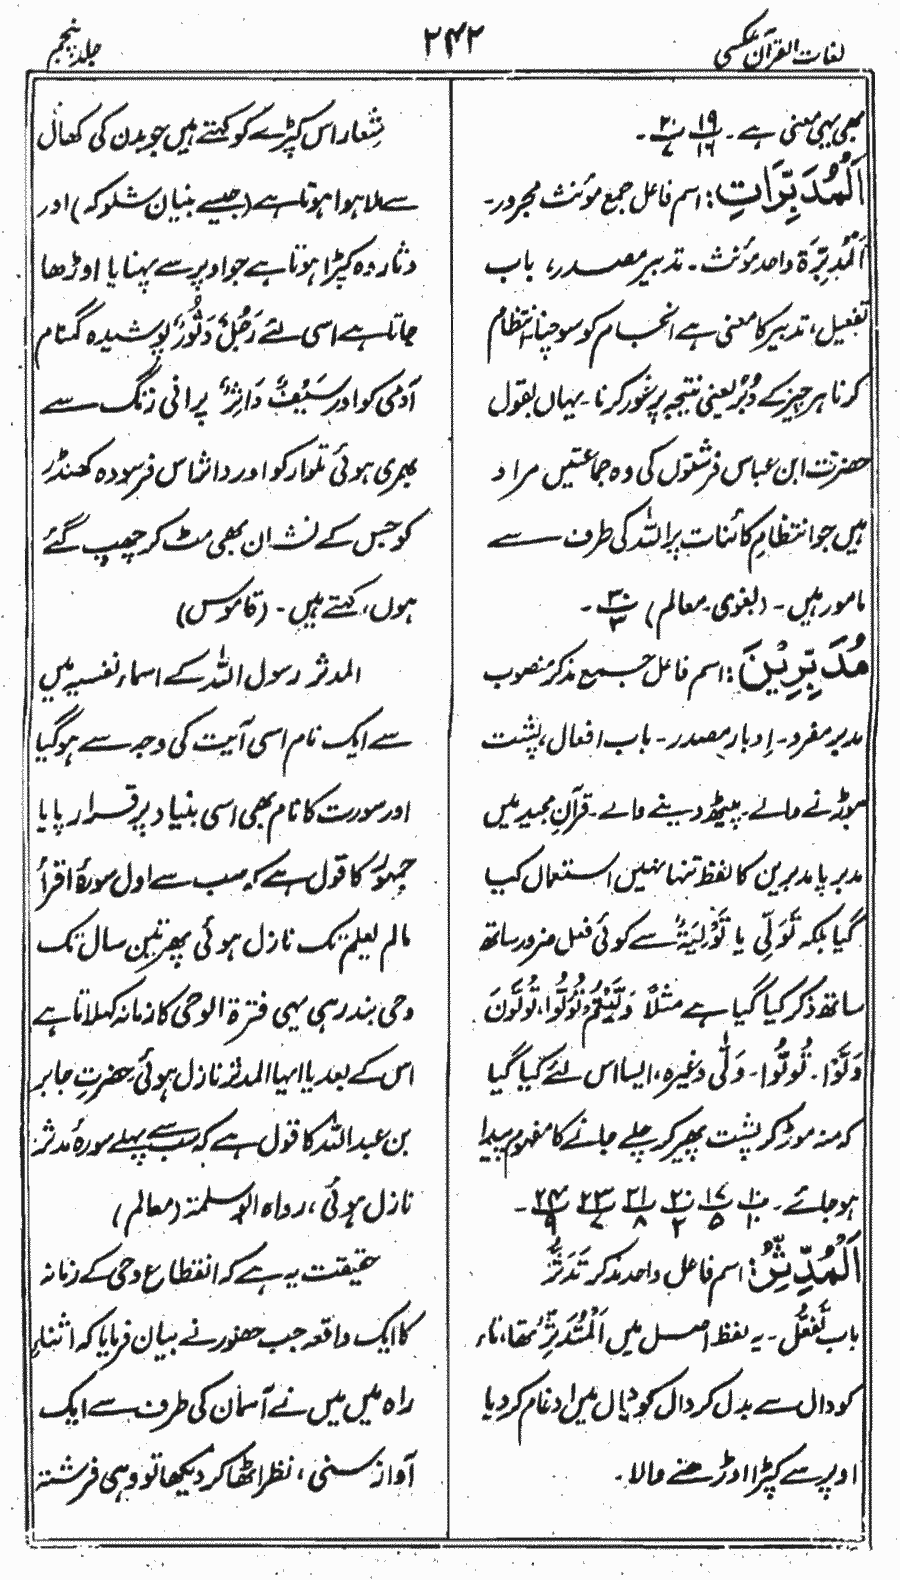 لغات القرآن عکسی
۲۴۲
جلد پنجم
بھی یہی معنی ہے ۔ ۱۹/۱۶ ۲۰/۷ ۔
اَلْمُدَبِّرَاتِ: اسم فاعل جمع مؤنث مجرور۔
اَلْمُدَبِّرَۃُ واحد مؤنث ۔ تدبیر مصدر، باب
تفعیل، تدبیر کا معنی ہے انجام کو سوچنا، انتظام
کرنا ہر چیز کے دُبُر یعنی نتیجہ پر غور کرنا ۔ یہاں بقول
حضرت ابن عباس فرشتوں کی وہ جماعتیں مراد
ہیں جو انتظام کائنات پر اللہ کی طرف سے
مامور ہیں ۔ (بغوی ۔ معالم) ۳۰/۳ ۔
مُدَبِّرِیْنَ: اسم فاعل جمع مذکر منصوب
مدبر مفرد ۔ اِدبار مصدر ۔ باب افعال، پشت
موڑنے والے ۔ پیٹھ دینے والے ۔ قرآنِ مجید میں
مدبر یا مدبرین کا لفظ تنہا نہیں استعمال کیا
گیا بلکہ تَوَلّٰی یا تَوْلِیَۃٌ سے کوئی فعل ضرور ساتھ
ساتھ ذکر کیا گیا ہے مثلاً وَلَّیْتُمْ، تُوَلُّوْا، تُوَلُّوْنَ
وَلَّوْا ۔ تُوَلُّوْا ۔ وَلّٰی وغیرہ، ایسا اس لئے کیا گیا
کہ منہ موڑ کر پشت پھیر کر چلے جانے کا مفہوم پیدا
ہو جائے ۔ ۱۰/۱۰ ۱۷/۵ ۲۰/۲ ۲۱/۸ ۲۳/۷ ۲۴/۹ ۔
اَلْمُدَّثِّرُ: اسم فاعل واحد مذکر تَدَثُّرٌ
باب تَفَعُّل ۔ یہ لفظ اصل میں اَلْمُتَدَثِّرُ تھا، تاء
کو دال سے بدل کر دال کو دال میں ادغام کر دیا
اوپر سے کپڑا اوڑھنے والا ۔
شِعار اس کپڑے کو کہتے ہیں جو بدن کی کھال
سے ملا ہوا ہوتا ہے (جیسے بنیان شلوکہ) اور
دثار وہ کپڑا ہوتا ہے جو اوپر سے پہنا یا اوڑھا
جاتا ہے اسی لئے رَجُلٌ دَثُوْرٌ پوشیدہ گمنام
آدمی کو اور سَیْفٌ دَاثِرٌ پرانی زنگ سے
بھری ہوئی تلوار کو اور داثر اس فرسودہ کھنڈر
کو جس کے نشان بھی مٹ کر چھپ گئے
ہوں، کہتے ہیں ۔ (قاموس)
المدثر رسول اللہ کے اسماء نفسیہ میں
سے ایک نام اسی آیت کی وجہ سے ہو گیا
اور سورت کا نام بھی اسی بنیاد پر قرار پایا
جمہور کا قول ہے کہ سب سے اول سورۂ اقرأ
مالم یعلم تک نازل ہوئی پھر تین سال تک
وحی بند رہی یہی فترۃ الوحی کا زمانہ کہلاتا ہے
اس کے بعد یا ایہا المدثر نازل ہوئی حضرت جابر
بن عبد اللہ کا قول ہے کہ سب سے پہلے سورۂ مدثر
نازل ہوئی، رواہ ابو سلمۃ (معالم)
حقیقت یہ ہے کہ انقطاع وحی کے زمانہ
کا ایک واقعہ جب حضور نے بیان فرمایا کہ اثناءِ
راہ میں میں نے آسمان کی طرف سے ایک
آواز سنی، نظر اٹھا کر دیکھا تو وہی فرشتہ